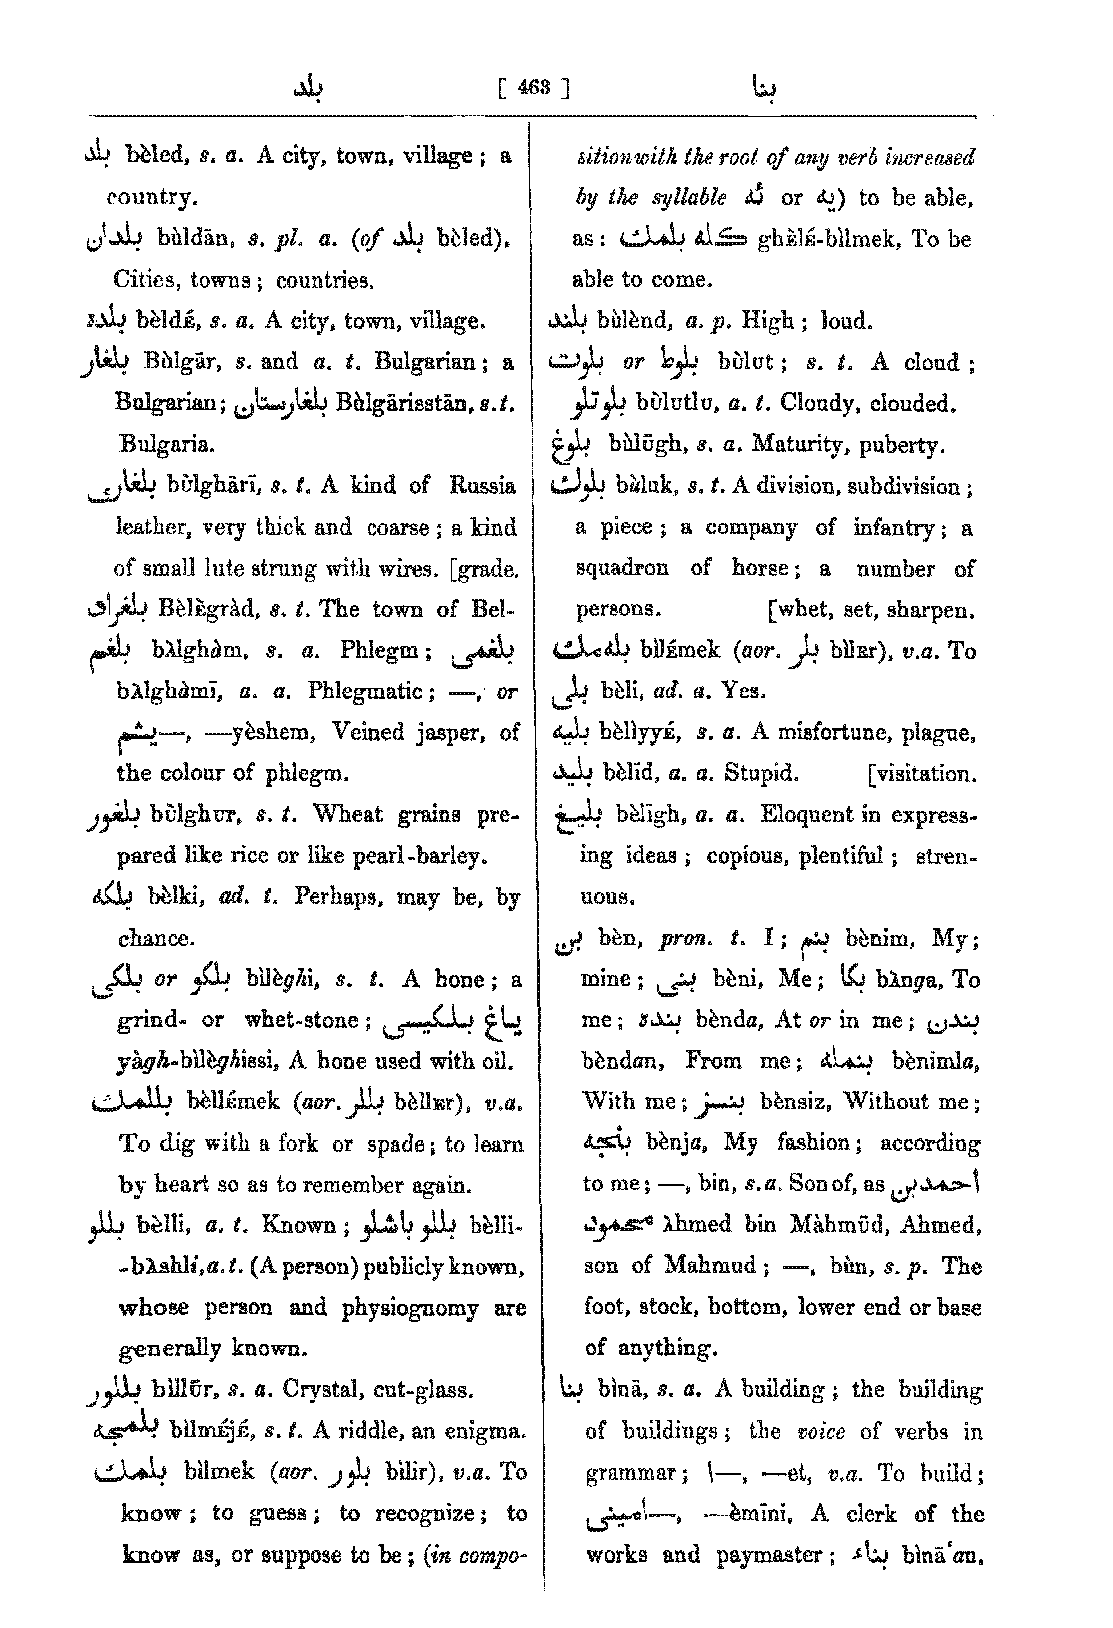 بلد [ 463 ] بنا
بلد bèled, s. a. A city, town, village; a
country.
بلدان bùldān, s. pl. a. (of بلد bèled),
Cities, towns; countries.
بلده bèldɛ́, s. a. A city, town, village.
بلغار Bùlgār, s. and a. t. Bulgarian; a
Bulgarian; بلغارستان Bùlgārisstān, s.t.
Bulgaria.
بلغاری bùlghārī, s. t. A kind of Russia
leather, very thick and coarse; a kind
of small lute strung with wires. [grade.
بلغراد Bèlɛ̀gràd, s. t. The town of Bel-
بلغم bʌlghàm, s. a. Phlegm; بلغمی
bʌlghàmī, a. a. Phlegmatic; —, or
یشم—, —yèshem, Veined jasper, of
the colour of phlegm.
بلغور bùlghur, s. t. Wheat grains pre-
pared like rice or like pearl-barley.
بلكه bèlki, ad. t. Perhaps, may be, by
chance.
بلكی or بلكو bìlèghi, s. t. A hone; a
grind- or whet-stone; یاغ بیلكیسی
yàgh-bìlèghissi, A hone used with oil.
بللمك bèllɛ́mek (aor. بللر bèllᴇr), v.a.
To dig with a fork or spade; to learn
by heart so as to remember again.
بللو bèlli, a. t. Known; بللو باشلو bèlli-
-bʌshli, a. t. (A person) publicly known,
whose person and physiognomy are
generally known.
بللور bìllūr, s. a. Crystal, cut-glass.
بلمیجه bìlmɛ́jɛ́, s. t. A riddle, an enigma.
بلمك bìlmek (aor. بلور bìlir), v.a. To
know; to guess; to recognize; to
know as, or suppose to be; (in compo-
sition with the root of any verb increased
by the syllable لَه or یه) to be able,
as: كله بلمك ghɛ̀lɛ́-bìlmek, To be
able to come.
بلند bùlènd, a. p. High; loud.
بلوت or بلوط bùlut; s. t. A cloud;
بلوتلو bùlutlu, a. t. Cloudy, clouded.
بلوغ bùlūgh, s. a. Maturity, puberty.
بلوك bùluk, s. t. A division, subdivision;
a piece; a company of infantry; a
squadron of horse; a number of
persons. [whet, set, sharpen.
بلهمك bìlɛ́mek (aor. بلر bìlᴇr), v.a. To
بلی bèli, ad. a. Yes.
بلیه bèlìyyɛ́, s. a. A misfortune, plague,
بلید bèlīd, a. a. Stupid. [visitation.
بلیغ bèlīgh, a. a. Eloquent in express-
ing ideas; copious, plentiful; stren-
uous.
بن bèn, pron. t. I; بنم bènim, My;
mine; بنی bèni, Me; بكا bʌnga, To
me; بنده bènda, At or in me; بندن
bèndan, From me; بنمله bènimla,
With me; بنسز bènsiz, Without me;
بنجه bènja, My fashion; according
to me; —, bin, s. a. Son of, as احمد بن
محمود ʌhmed bin Màhmūd, Ahmed,
son of Mahmud; —, bùn, s. p. The
foot, stock, bottom, lower end or base
of anything.
بنا bìnā, s. a. A building; the building
of buildings; the voice of verbs in
grammar; ا—, —et, v.a. To build;
امینی—, —èmīni, A clerk of the
works and paymaster; بناء bìnā'an,